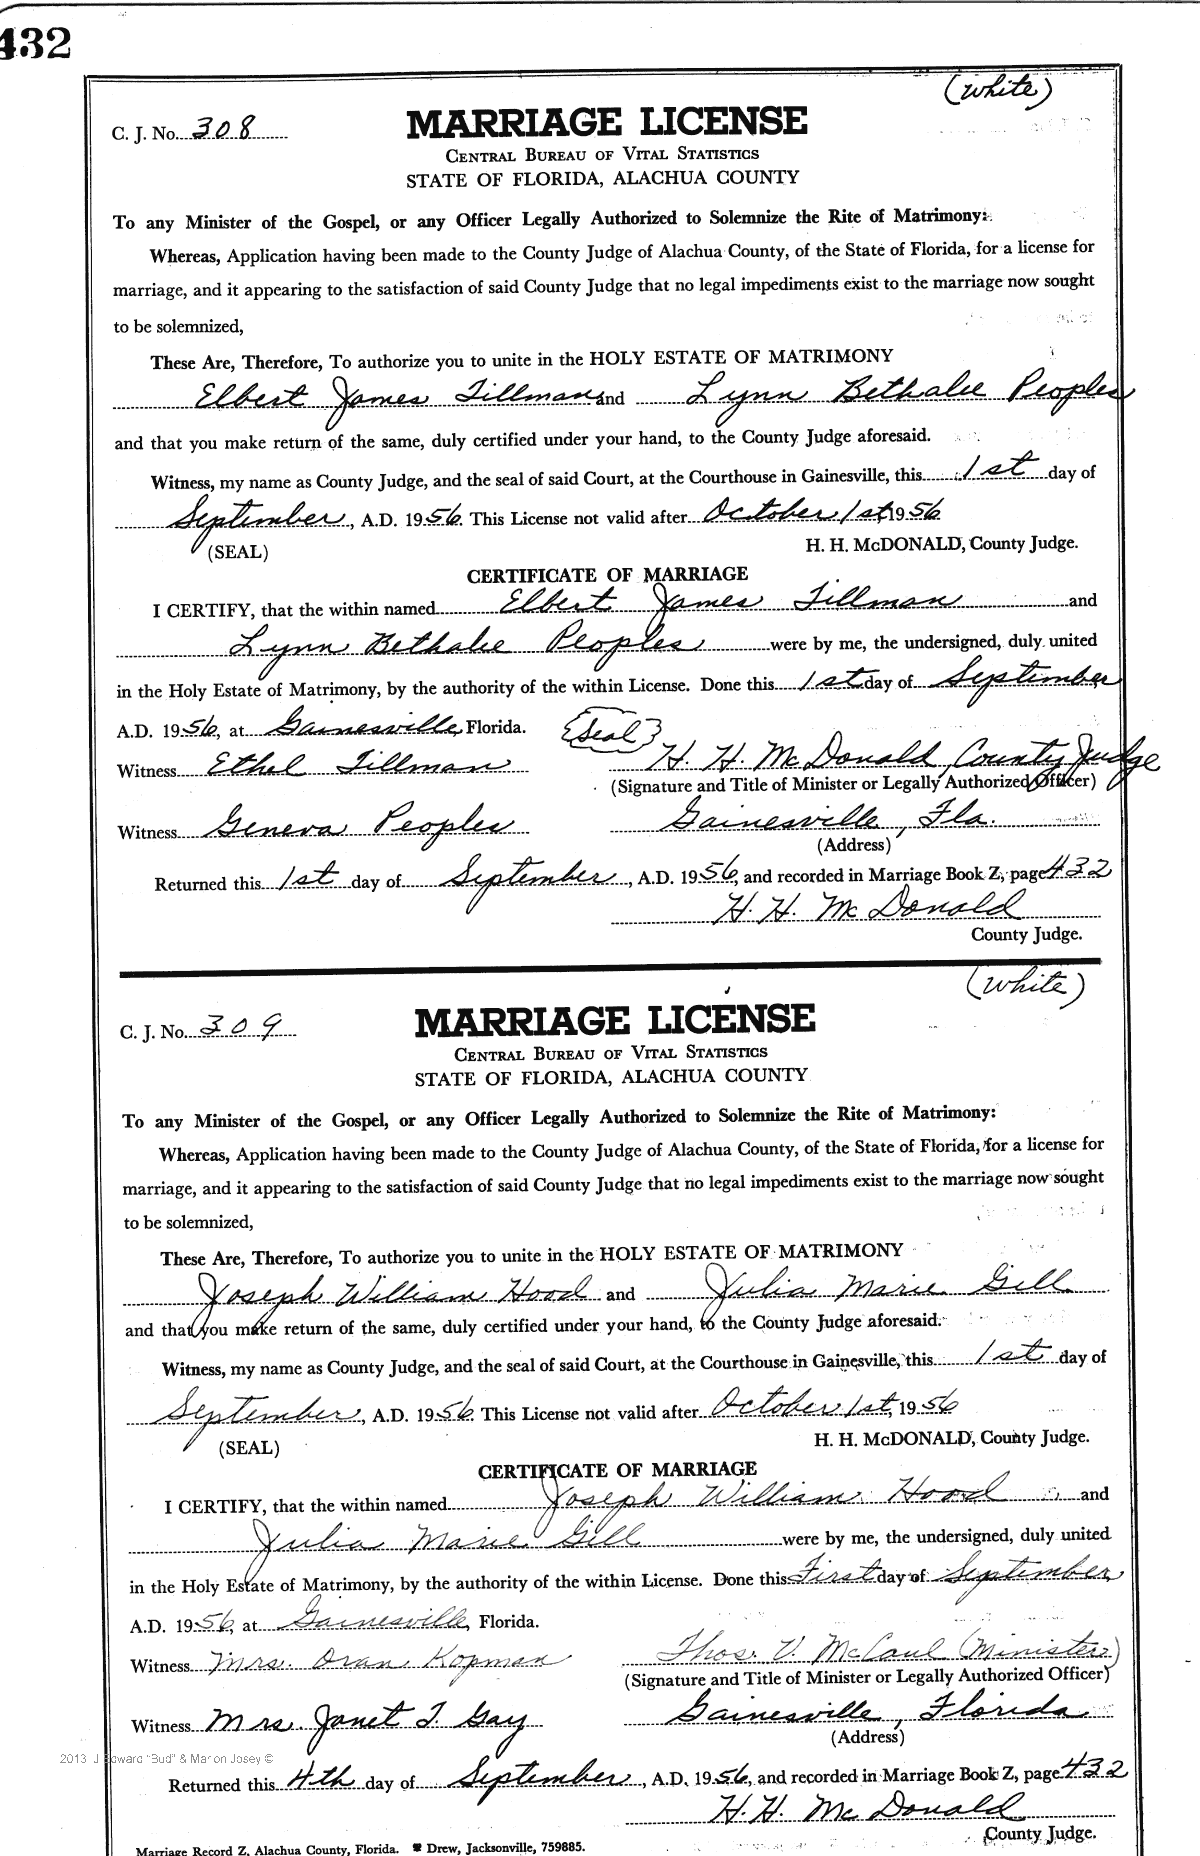 432
(White)
C. J. No. 308
MARRIAGE LICENSE
CENTRAL BUREAU OF VITAL STATISTICS
STATE OF FLORIDA, ALACHUA COUNTY
To any Minister of the Gospel, or any Officer Legally Authorized to Solemnize the Rite of Matrimony:
Whereas, Application having been made to the County Judge of Alachua County, of the State of Florida, for a license for
marriage, and it appearing to the satisfaction of said County Judge that no legal impediments exist to the marriage now sought
to be solemnized,
These Are, Therefore, To authorize you to unite in the HOLY ESTATE OF MATRIMONY
Elbert James Tillman and Lynn Bethalee Peoples
and that you make return of the same, duly certified under your hand, to the County Judge aforesaid.
Witness, my name as County Judge, and the seal of said Court, at the Courthouse in Gainesville, this 1st day of
September, A.D. 1956. This License not valid after October 1st, 1956
(SEAL) H. H. McDONALD, County Judge.
CERTIFICATE OF MARRIAGE
I CERTIFY, that the within named Elbert James Tillman and
Lynn Bethalee Peoples were by me, the undersigned, duly united
in the Holy Estate of Matrimony, by the authority of the within License. Done this 1st day of September
A.D. 1956, at Gainesville, Florida. (Seal)
Witness Ethel Tillman H. H. McDonald, County Judge
(Signature and Title of Minister or Legally Authorized Officer)
Witness Geneva Peoples Gainesville, Fla.
(Address)
Returned this 1st day of September, A.D. 1956, and recorded in Marriage Book Z, page 432
H. H. McDonald
County Judge.
(White)
C. J. No. 309
MARRIAGE LICENSE
CENTRAL BUREAU OF VITAL STATISTICS
STATE OF FLORIDA, ALACHUA COUNTY
To any Minister of the Gospel, or any Officer Legally Authorized to Solemnize the Rite of Matrimony:
Whereas, Application having been made to the County Judge of Alachua County, of the State of Florida, for a license for
marriage, and it appearing to the satisfaction of said County Judge that no legal impediments exist to the marriage now sought
to be solemnized,
These Are, Therefore, To authorize you to unite in the HOLY ESTATE OF MATRIMONY
Joseph William Hood and Julia Marie Gill
and that you make return of the same, duly certified under your hand, to the County Judge aforesaid.
Witness, my name as County Judge, and the seal of said Court, at the Courthouse in Gainesville, this 1st day of
September, A.D. 1956. This License not valid after October 1st, 1956
(SEAL) H. H. McDONALD, County Judge.
CERTIFICATE OF MARRIAGE
I CERTIFY, that the within named Joseph William Hood and
Julia Marie Gill were by me, the undersigned, duly united
in the Holy Estate of Matrimony, by the authority of the within License. Done this First day of September,
A.D. 1956, at Gainesville, Florida.
Witness Mrs. Oran Kopman Thos. V. McCaul (Minister)
(Signature and Title of Minister or Legally Authorized Officer)
Witness Mrs. Janet T. Gay Gainesville, Florida
(Address)
2013 J Edward "Bud" & Marion Josey ©
Returned this 4th day of September, A.D. 1956, and recorded in Marriage Book Z, page 432
H. H. McDonald
County Judge.
Marriage Record Z, Alachua County, Florida. Drew, Jacksonville, 759885.